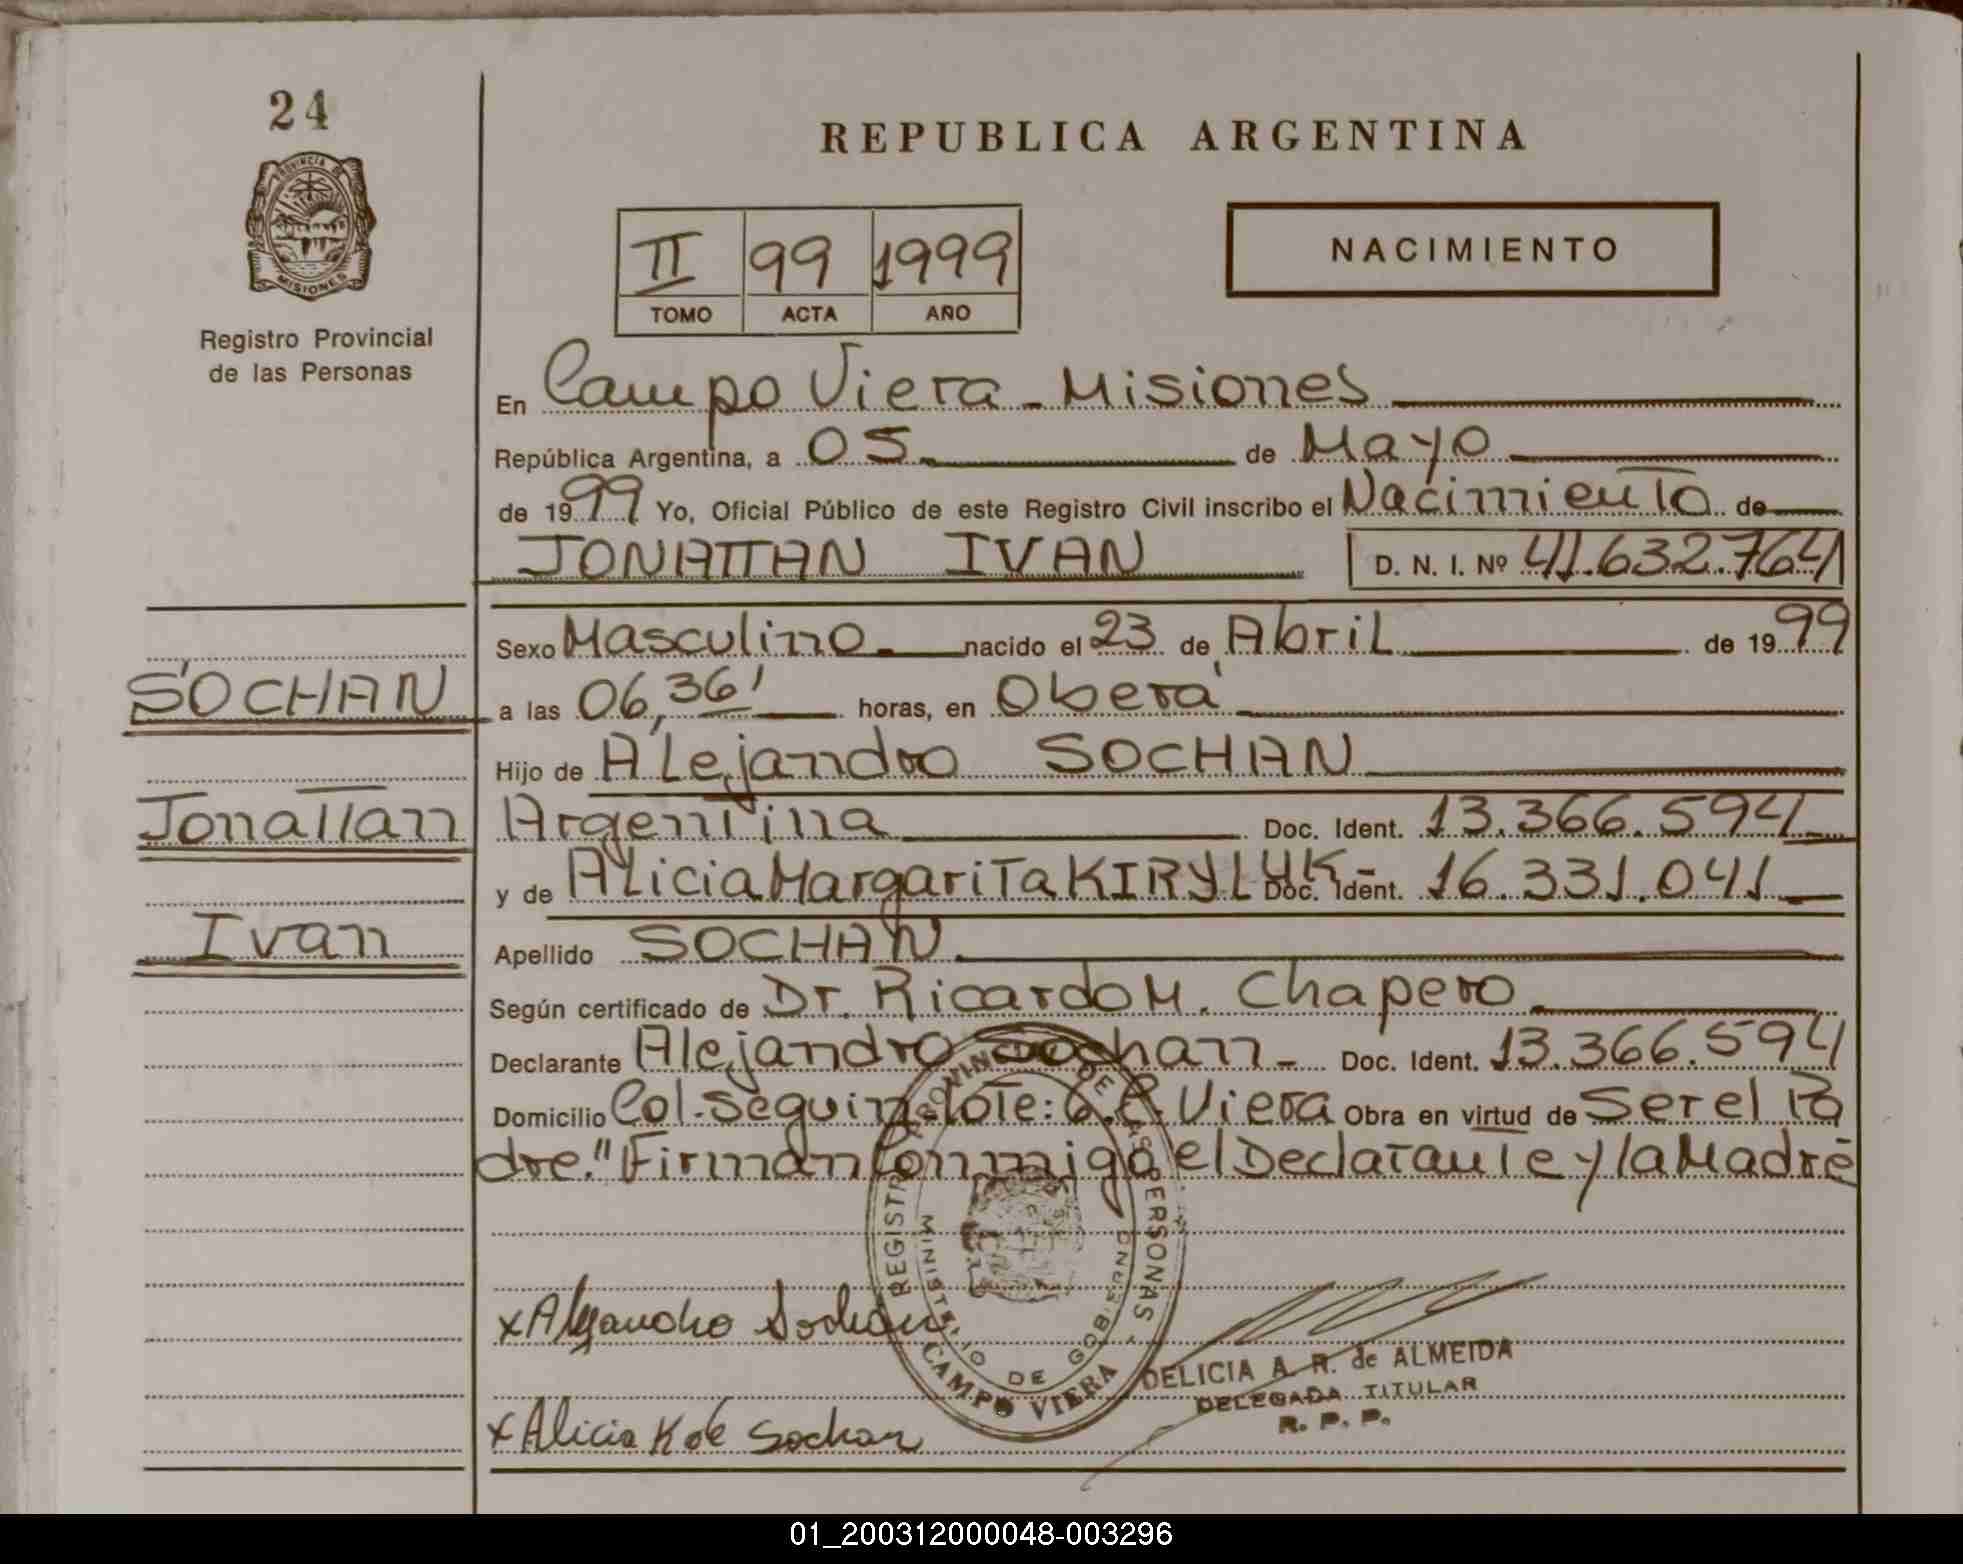 24
PROVINCIA DE
MISIONES
Registro Provincial
de las Personas
REPUBLICA ARGENTINA
II 99 1999
TOMO ACTA AÑO
NACIMIENTO
En Campo Viera - Misiones
República Argentina, a 05 de Mayo
de 1999 Yo, Oficial Público de este Registro Civil inscribo el Nacimiento de
JONATTAN IVAN D. N. I. Nº 41.632.764
Sexo Masculino nacido el 23 de Abril de 1999
SOCHAN a las 06,36' horas, en Oberá
Hijo de Alejandro SOCHAN
Jonattan Argentina Doc. Ident. 13.366.594
y de Alicia Margarita KIRYLUK- Doc. Ident. 16.331.041
Ivan Apellido SOCHAN
Según certificado de Dr. Ricardo M. Chapero
Declarante Alejandro Sochan - Doc. Ident. 13.366.594
Domicilio Col. Seguin-Lote: 6. C. Viera Obra en virtud de Ser el Pa
dre." Firman Conmigo el Declarante y la Madre
REGISTRO PROVINCIAL DE LAS PERSONAS
MINISTERIO DE GOBIERNO
CAMPO VIERA
x Alejandro Sochan
DELICIA A. R. de ALMEIDA
DELEGADA TITULAR
R. P. P.
x Alicia K de Sochan
01_200312000048-003296